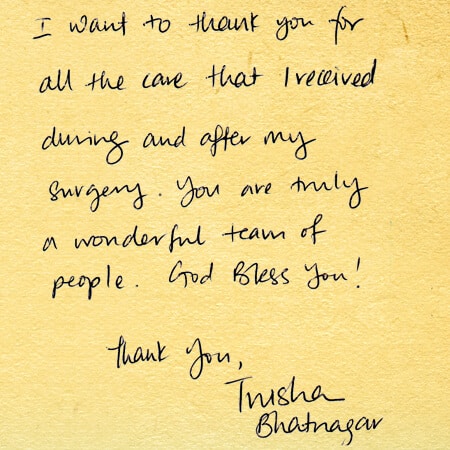 I want to thank you for
all the care that I received
during and after my
surgery. You are truly
a wonderful team of
people. God Bless You!
Thank You,
Trisha
Bhatnagar